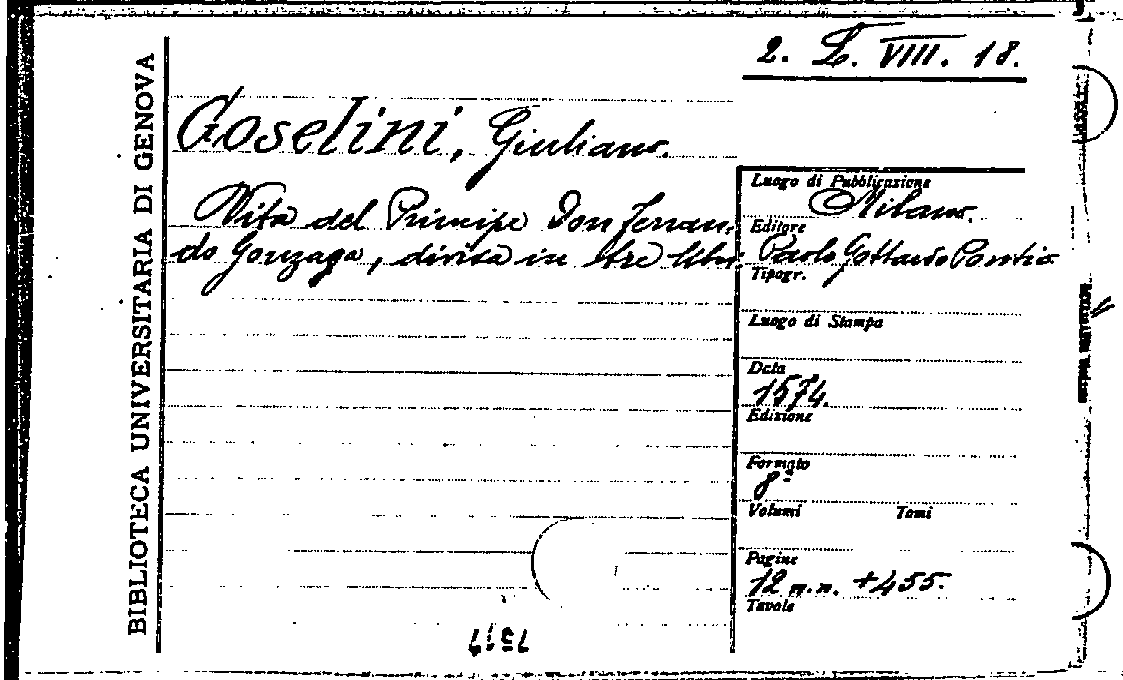 BIBLIOTECA UNIVERSITARIA DI GENOVA
2. L. VIII. 18.
Goselini, Giuliano.
Vita del Principe Don Ferran-
do Gonzaga, divisa in tre libri.
Luogo di Pubblicazione
Milano.
Editore
Paolo Gottardo Pontio
Tipogr.
Luogo di Stampa
Data
1574.
Edizione
Formato
8º
Volumi Tomi
Pagine
12 n.n. + 455.
Tavole